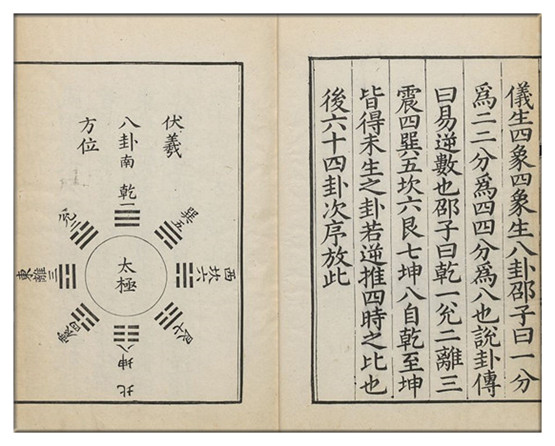 儀生四象四象生八卦邵子曰一分
爲二二分爲四四分爲八也說卦傳
曰易逆數也邵子曰乾一兌二離三
震四巽五坎六艮七坤八自乾至坤
皆得未生之卦若逆推四時之比也
後六十四卦次序放此
伏羲
八卦
方位
南
乾一
巽五
西
坎六
艮七
坤八
北
震四
東
離三
兌二
太極